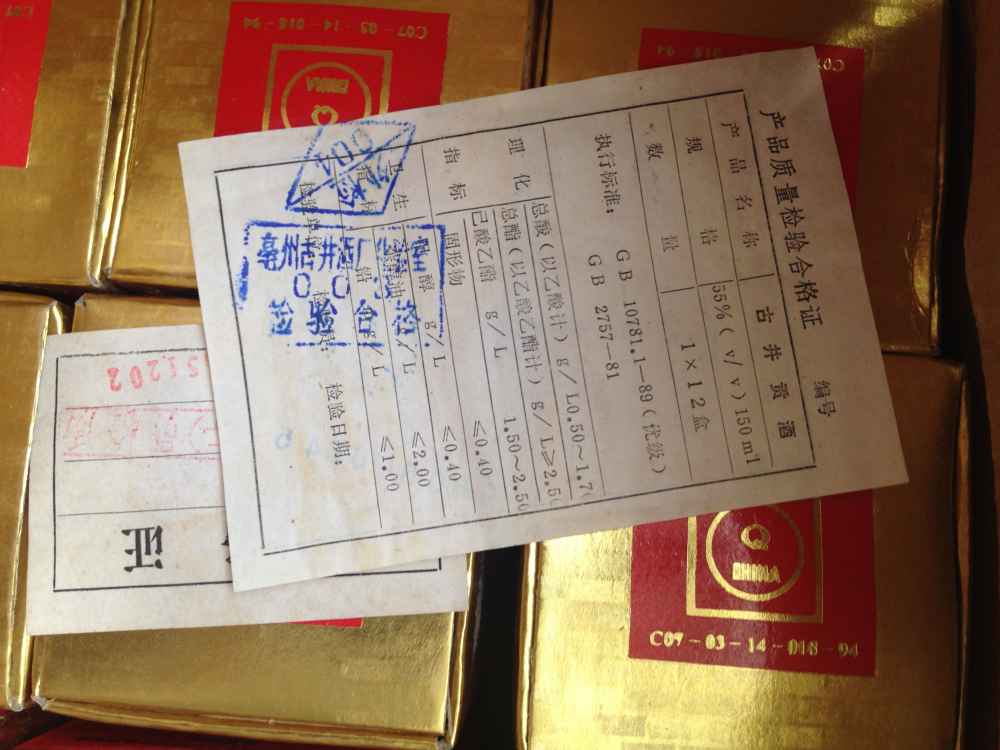 产品质量检验合格证
编号
产品名称 古井贡酒
规格 55%(v/v)150ml
数量 1×12盒
执行标准: GB 10781.1—89(优级)
GB 2757—81
理化指标
总酸(以乙酸计)g/L0.50~1.7
总酯(以乙酸乙酯计)g/L≥2.5
己酸乙酯 g/L 1.50~2.50
固形物 g/L ≤0.40
≤0.40
≤2.00
≤1.00
检验日期:
亳州古井酒厂
检验合格
证
51202
CHINA
C07-03-14-018-94
C07-03-14-018-94
CHINA
C07
018-94
C07